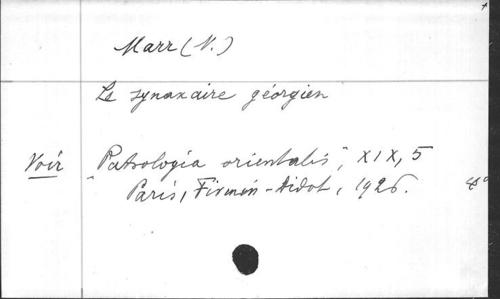 Marr (N.)
Le synaxaire géorgien
Voir "Patrologia orientalis", XIX, 5
Paris, Firmin-Didot, 1926. 8°